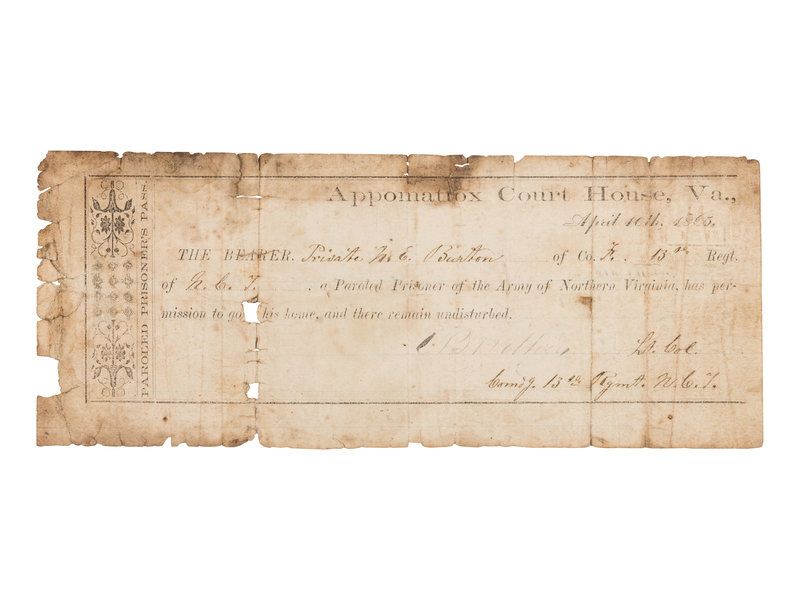 PAROLED PRISONER'S PASS
Appomattox Court House, Va.,
April 10th, 1865.
THE BEARER, Private M. E. Burton of Co. F. 13th Regt.
of N. C. T. a Paroled Prisoner of the Army of Northern Virginia, has per-
mission to go his home, and there remain undisturbed.
Lt. Col.
Comdg. 13th Regmt. N. C. T.